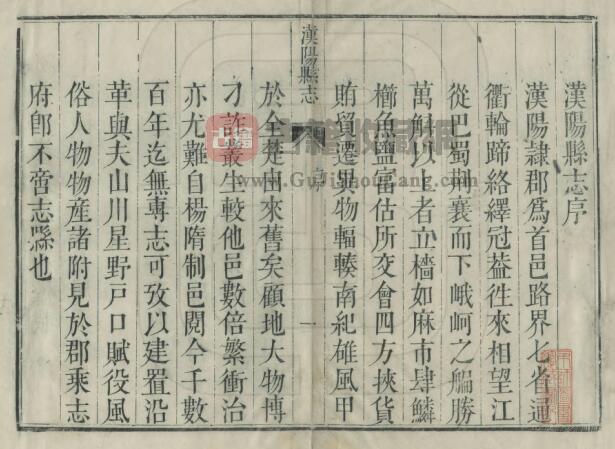 漢陽縣志序
漢陽隸郡爲首邑路界七省通
衢輪蹄絡繹冠葢徃來相望江
從巴蜀荆襄而下峨岢之艑勝
萬斛以上者立檣如麻市肆鱗
櫛魚鹽富估所交會四方挾貨
賄貿遷異物輻輳南紀雄風甲
漢陽縣志
序
一
於全楚由來舊矣顧地大物博
刁詐叢生較他邑數倍繁衝治
亦尤難自楊隋制邑閱今千數
百年迄無專志可攷以建置沿
革與夫山川星野戸口賦役風
俗人物物産諸附見於郡乘志
府卽不啻志縣也
www.GuJiShouCang.com